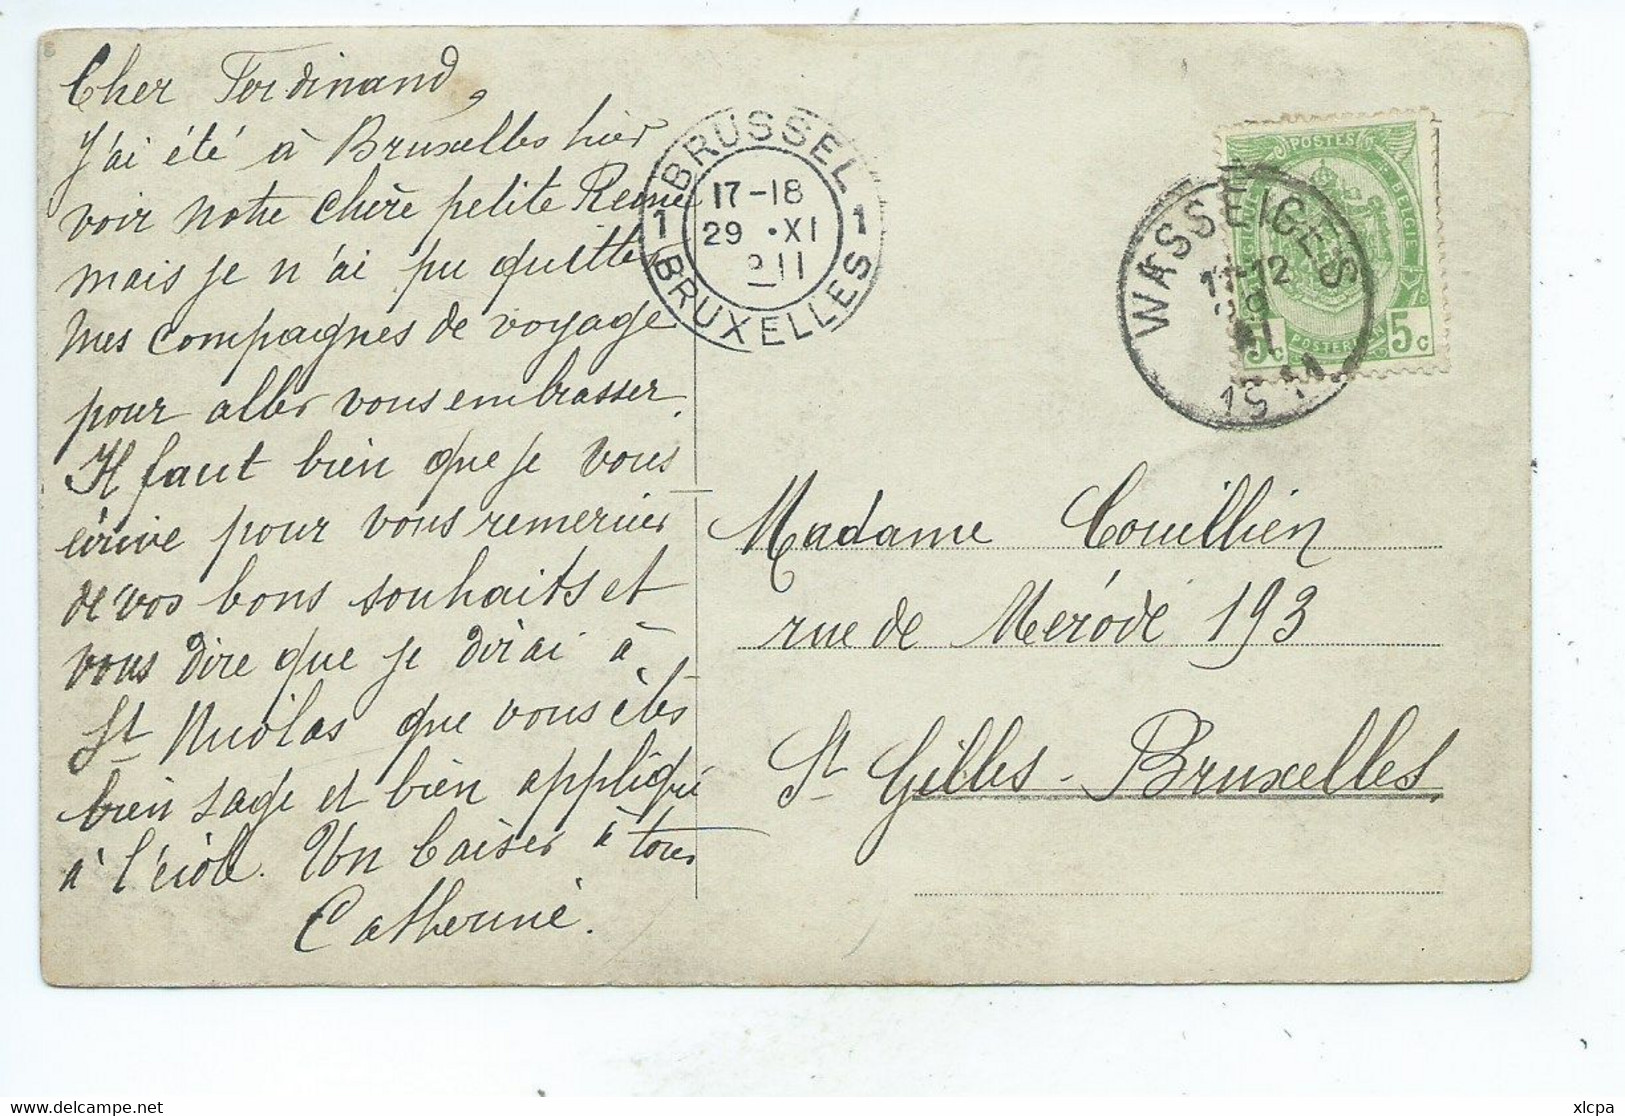 Cher Ferdinand,
J'ai été à Bruxelles hier
voir notre chère petite Reine
mais je n'ai pu quitter
mes compagnes de voyage
pour aller vous embrasser.
Il faut bien que je vous
écrive pour vous remercier
de vos bons souhaits et
vous dire que je dirai à
St Nicolas que vous êtes
bien sage et bien appliqué
à l'école. Un baiser à tous
Catherine.
BRUSSEL
1 17-18 1
29 • XI
11
BRUXELLES
POSTES
BELGIE
5 c POSTERIJEN 5 c
WASSEIGES
11-12
29
XI
1911
Madame Couillien
rue de Mérode 193
St Gilles - Bruxelles.
xlcpa
delcampe.net